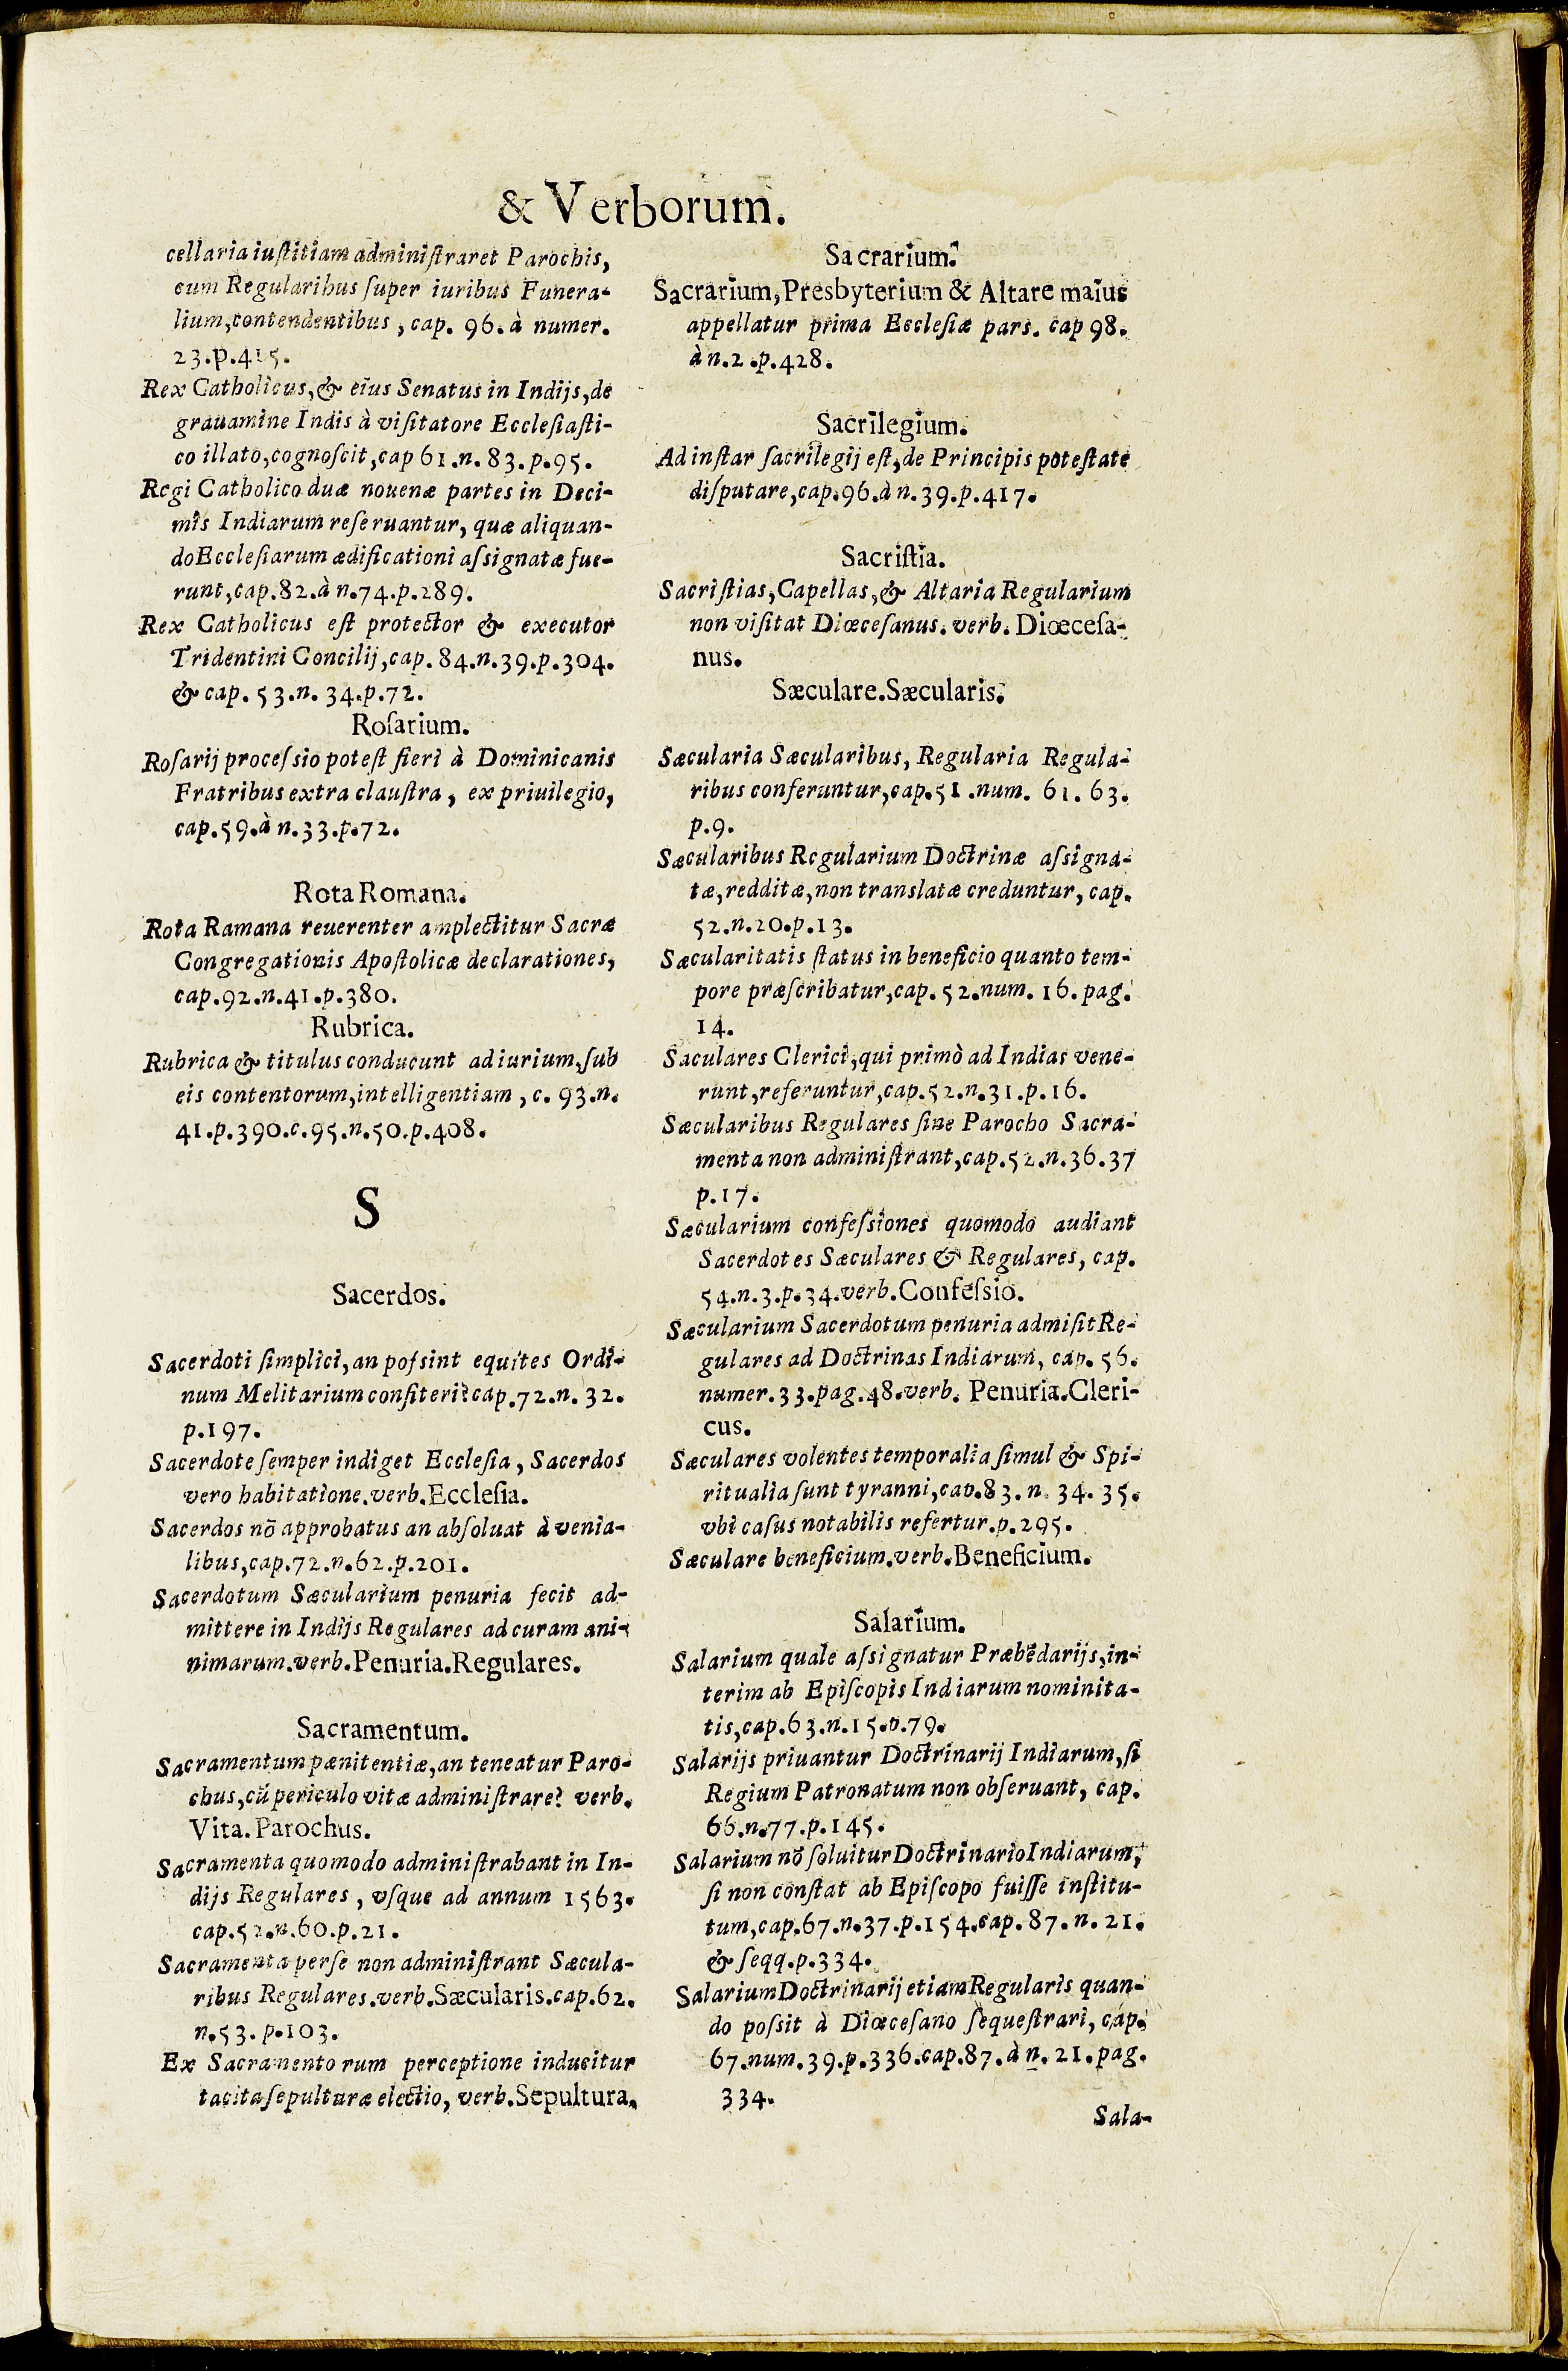 & Verborum.
cellaria iuſtitiam adminiſtraret Parochis,
cum Regularibus ſuper iuribus Funera-
lium, contendentibus, cap. 96. à numer.
23.p.415.
Rex Catholicus, & eius Senatus in Indijs, de
grauamine Indis à viſitatore Eccleſiaſti-
co illato, cognoſcit, cap 61.n. 83.p.95.
Regi Catholico duæ nouenæ partes in Deci-
mis Indiarum reſeruantur, quæ aliquan-
do Eccleſiarum ædificationi aſsignatæ fue-
runt, cap.82.à n.74.p.289.
Rex Catholicus eſt protector & executor
Tridentini Concilij, cap. 84.n.39.p.304.
& cap. 53.n. 34.p.72.
Roſarium.
Roſarij proceſsio poteſt fieri à Dominicanis
Fratribus extra clauſtra, ex priuilegio,
cap.59.à n.33.p.72.
Rota Romana.
Rota Ramana reuerenter amplectitur Sacræ
Congregationis Apoſtolicæ declarationes,
cap.92.n.41.p.380.
Rubrica.
Rubrica & titulus conducunt ad iurium, ſub
eis contentorum, intelligentiam, c. 93.n.
41.p.390.c.95.n.50.p.408.
S
Sacerdos.
Sacerdoti ſimplici, an poſsint equites Ordi-
num Melitarium confiteri? cap.72.n. 32.
p.197.
Sacerdote ſemper indiget Eccleſia, Sacerdos
vero habitatione. verb. Eccleſia.
Sacerdos nõ approbatus an abſoluat à venia-
libus, cap.72.n.62.p.201.
Sacerdotum Sæcularium penuria fecit ad-
mittere in Indijs Regulares ad curam ani-
nimarum. verb. Penuria. Regulares.
Sacramentum.
Sacramentum pænitentiæ, an teneatur Paro-
chus, cũ periculo vitæ adminiſtrare? verb.
Vita. Parochus.
Sacramenta quomodo adminiſtrabant in In-
dijs Regulares, vſque ad annum 1563.
cap.52.n.60.p.21.
Sacramenta per ſe non adminiſtrant Sæcula-
ribus Regulares. verb. Sæcularis. cap.62.
n.53. p.103.
Ex Sacramento rum perceptione inducitur
tacita ſepulturæ electio, verb. Sepultura.
Sacrarium.
Sacrarium, Presbyterium & Altare maius
appellatur prima Eccleſiæ pars. cap 98.
à n.2.p.428.
Sacrilegium.
Ad inſtar ſacrilegij eſt, de Principis poteſtate
diſputare, cap.96.à n.39.p.417.
Sacriſtia.
Sacriſtias, Capellas, & Altaria Regularium
non viſitat Diœceſanus. verb. Diœceſa-
nus.
Sæculare. Sæcularis.
Sæcularia Sæcularibus, Regularia Regula-
ribus conferuntur, cap.51.num. 61. 63.
p.9.
Sæcularibus Regularium Doctrinæ aſsigna-
tæ, redditæ, non translatæ creduntur, cap.
52.n.20.p.13.
Sæcularitatis ſtatus in beneficio quanto tem-
pore præſcribatur, cap. 52.num. 16. pag.
14.
Saculares Clerici, qui primò ad Indias vene-
runt, referuntur, cap.52.n.31.p.16.
Sæcularibus Regulares ſine Parocho Sacra-
menta non adminiſtrant, cap.52.n.36.37
p.17.
Sæcularium confeſsiones quomodo audiant
Sacerdotes Sæculares & Regulares, cap.
54.n.3.p.34. verb. Confeſsio.
Sæcularium Sacerdotum penuria admiſit Re-
gulares ad Doctrinas Indiarum, cap. 56.
numer.33.pag.48. verb. Penuria. Cleri-
cus.
Sæculares volentes temporalia ſimul & Spi-
ritualia ſunt tyranni, cap.83.n. 34. 35.
vbi caſus notabilis refertur.p.295.
Sæculare beneficium. verb. Beneficium.
Salarium.
Salarium quale aſsignatur Præbẽdarijs, in-
terim ab Epiſcopis Indiarum nominita-
tis, cap.63.n.15.p.79.
Salarijs priuantur Doctrinarij Indiarum, ſi
Regium Patronatum non obſeruant, cap.
66.n.77.p.145.
Salarium nõ ſoluitur Doctrinario Indiarum,
ſi non conſtat ab Epiſcopo fuiſſe inſtitu-
tum, cap.67.n.37.p.154.cap. 87. n. 21.
& ſeqq.p.334.
Salarium Doctrinarij etiam Regularis quan-
do poſsit à Diœceſano ſequeſtrari, cap.
67.num.39.p.336.cap.87.à n. 21.pag.
334.
Sala-